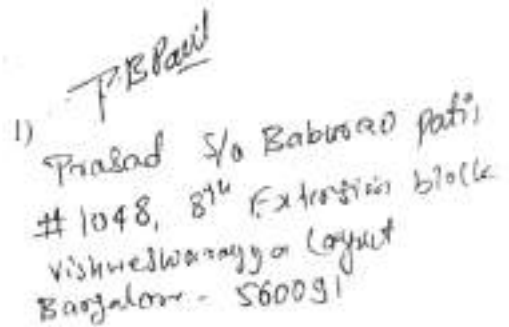 P.B Patil
1)
Prasad S/o Baburao Patil
#1048, 8th Extension block
Vishweshwarayya Layout
Bangalore - 560091